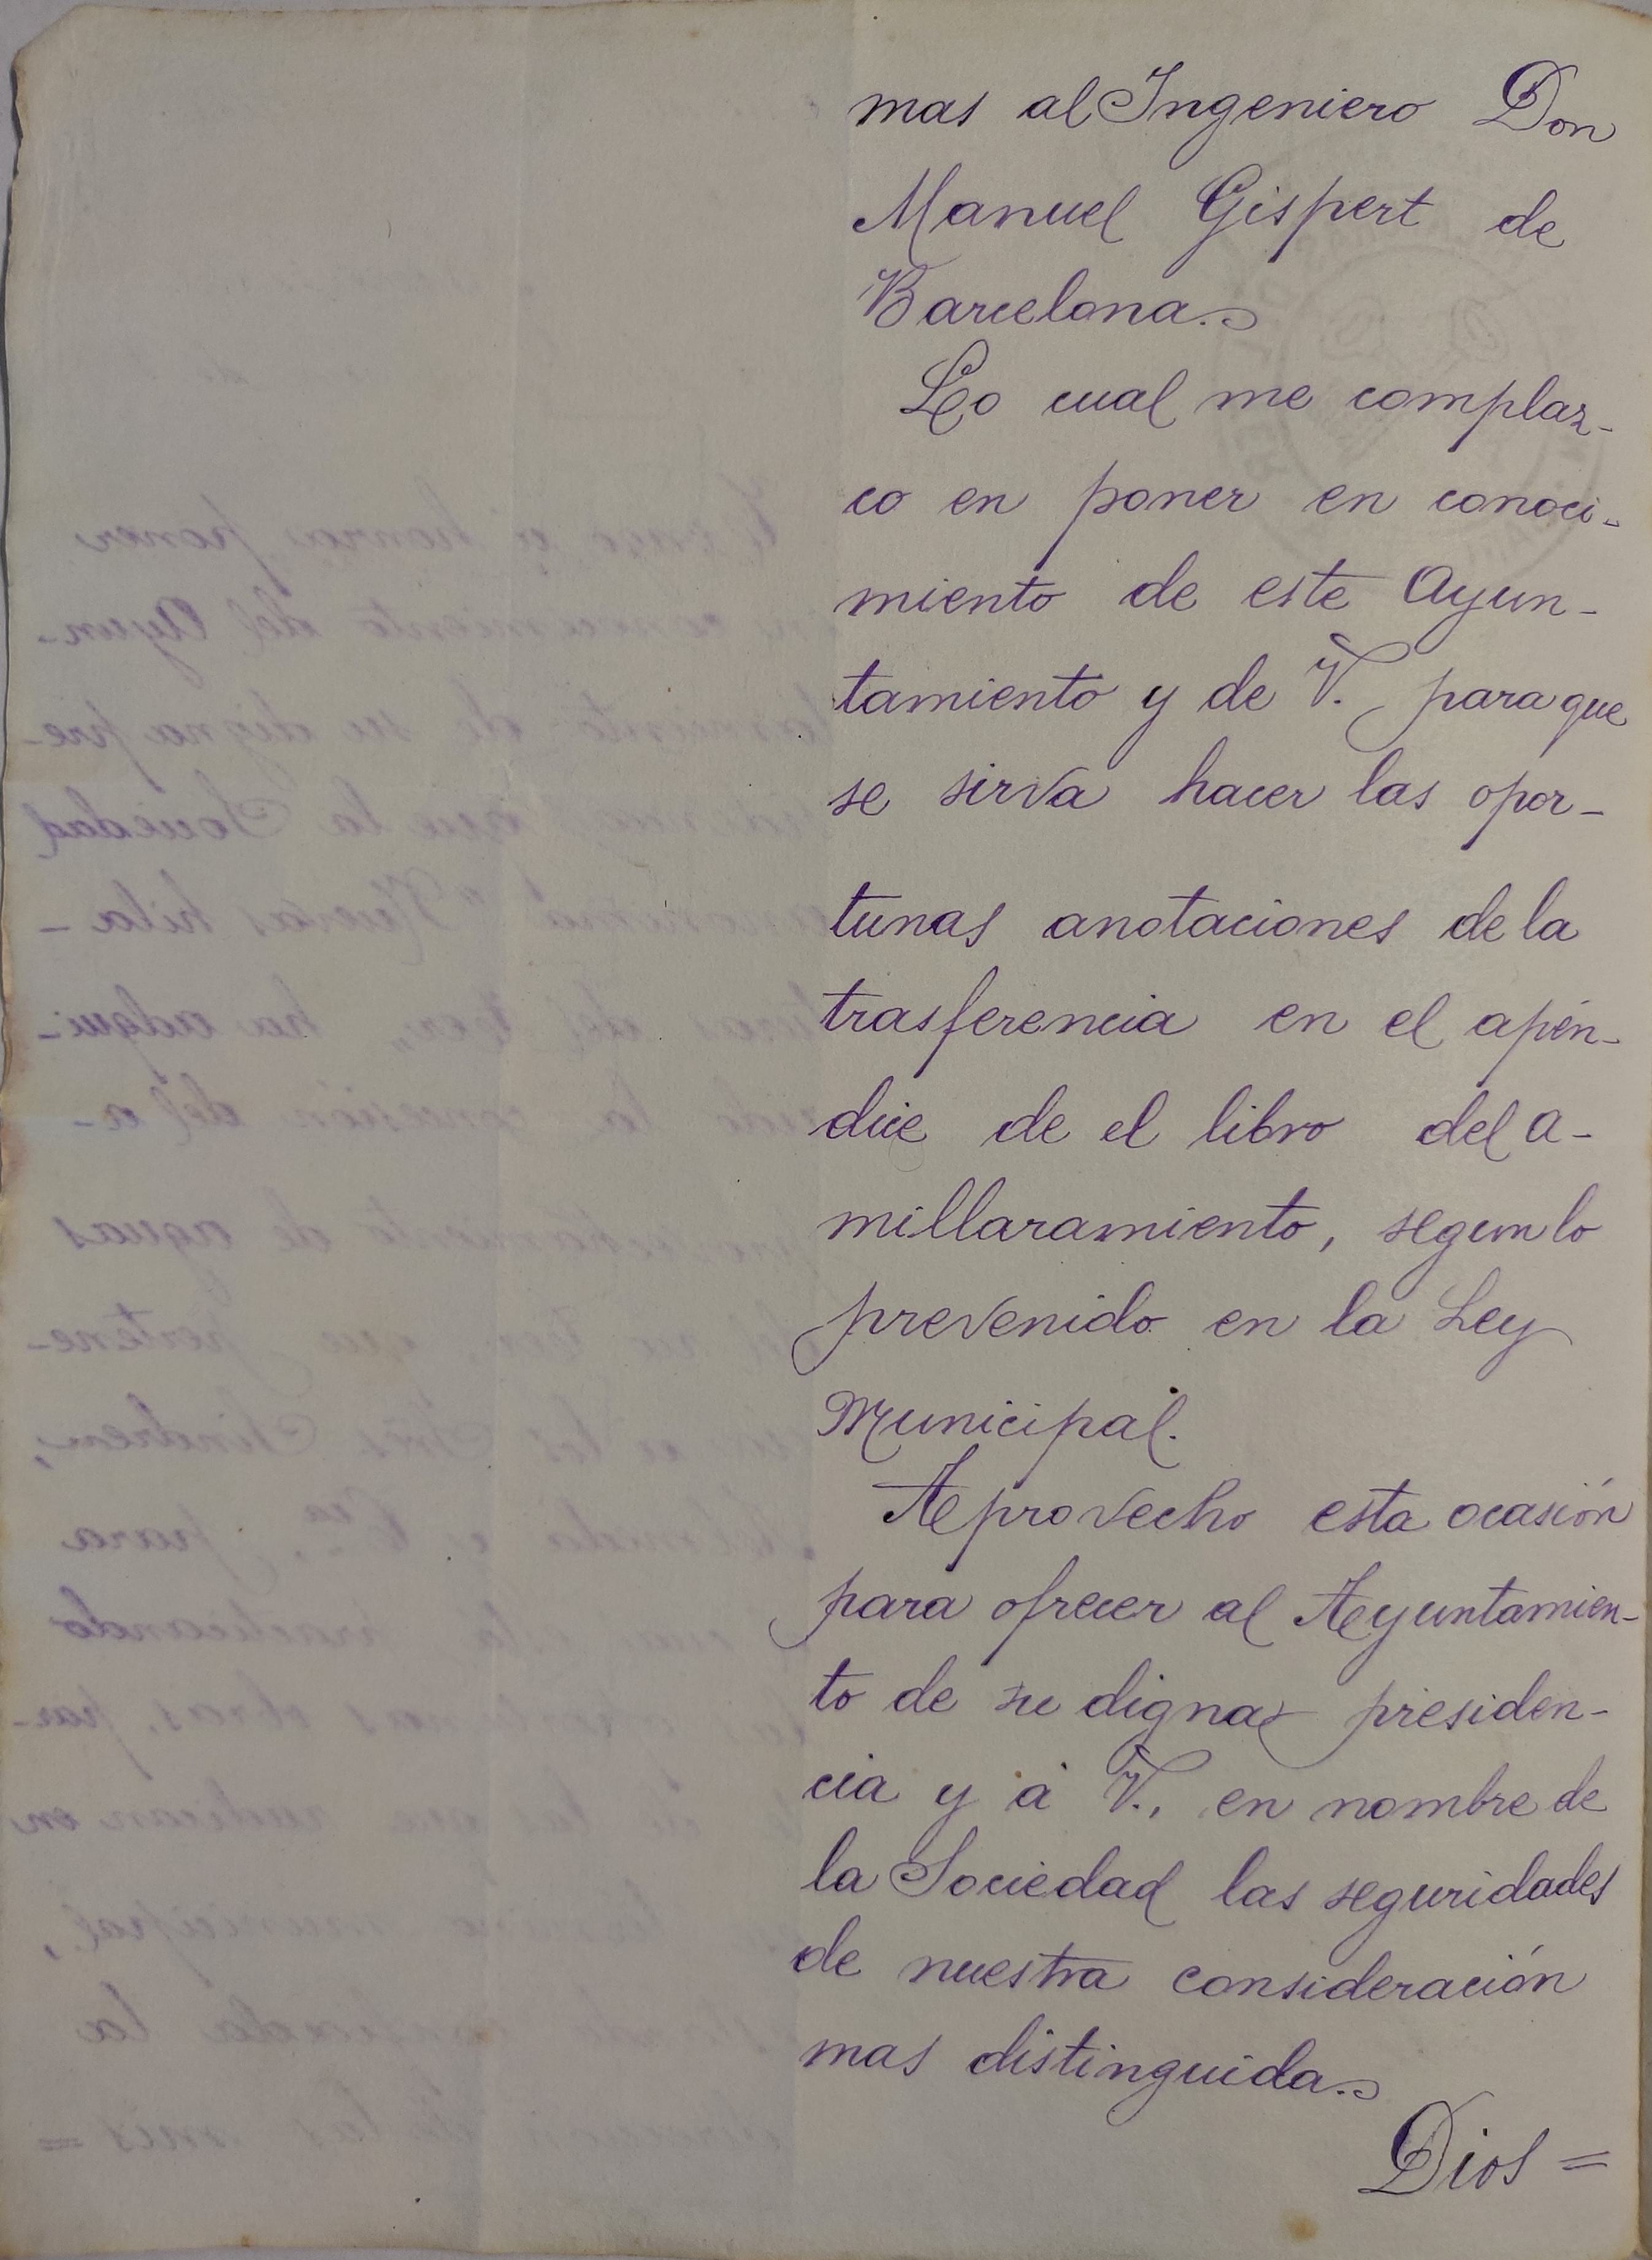 mas al Ingeniero Don
Manuel Gispert de
Barcelona.
Lo cual me complaz-
co en poner en conoci-
miento de este Ayun-
tamiento y de V. para que
se sirva hacer las opor-
tunas anotaciones de la
trasferencia en el apén-
dice de el libro del a-
millaramiento, segun lo
prevenido en la Ley
Municipal.
Aprovecho esta ocasión
para ofrecer al Ayuntamien-
to de su digna presiden-
cia y á V., en nombre de
la Sociedad las seguridades
de nuestra consideración
mas distinguida.
Dios =